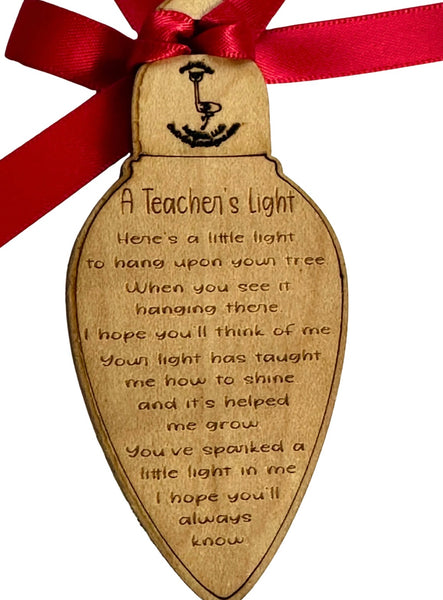 A Teacher's Light
Here's a little light
to hang upon your tree
When you see it
hanging there,
I hope you'll think of me
Your light has taught
me how to shine
and it's helped
me grow
You've sparked a
little light in me
I hope you'll
always
know